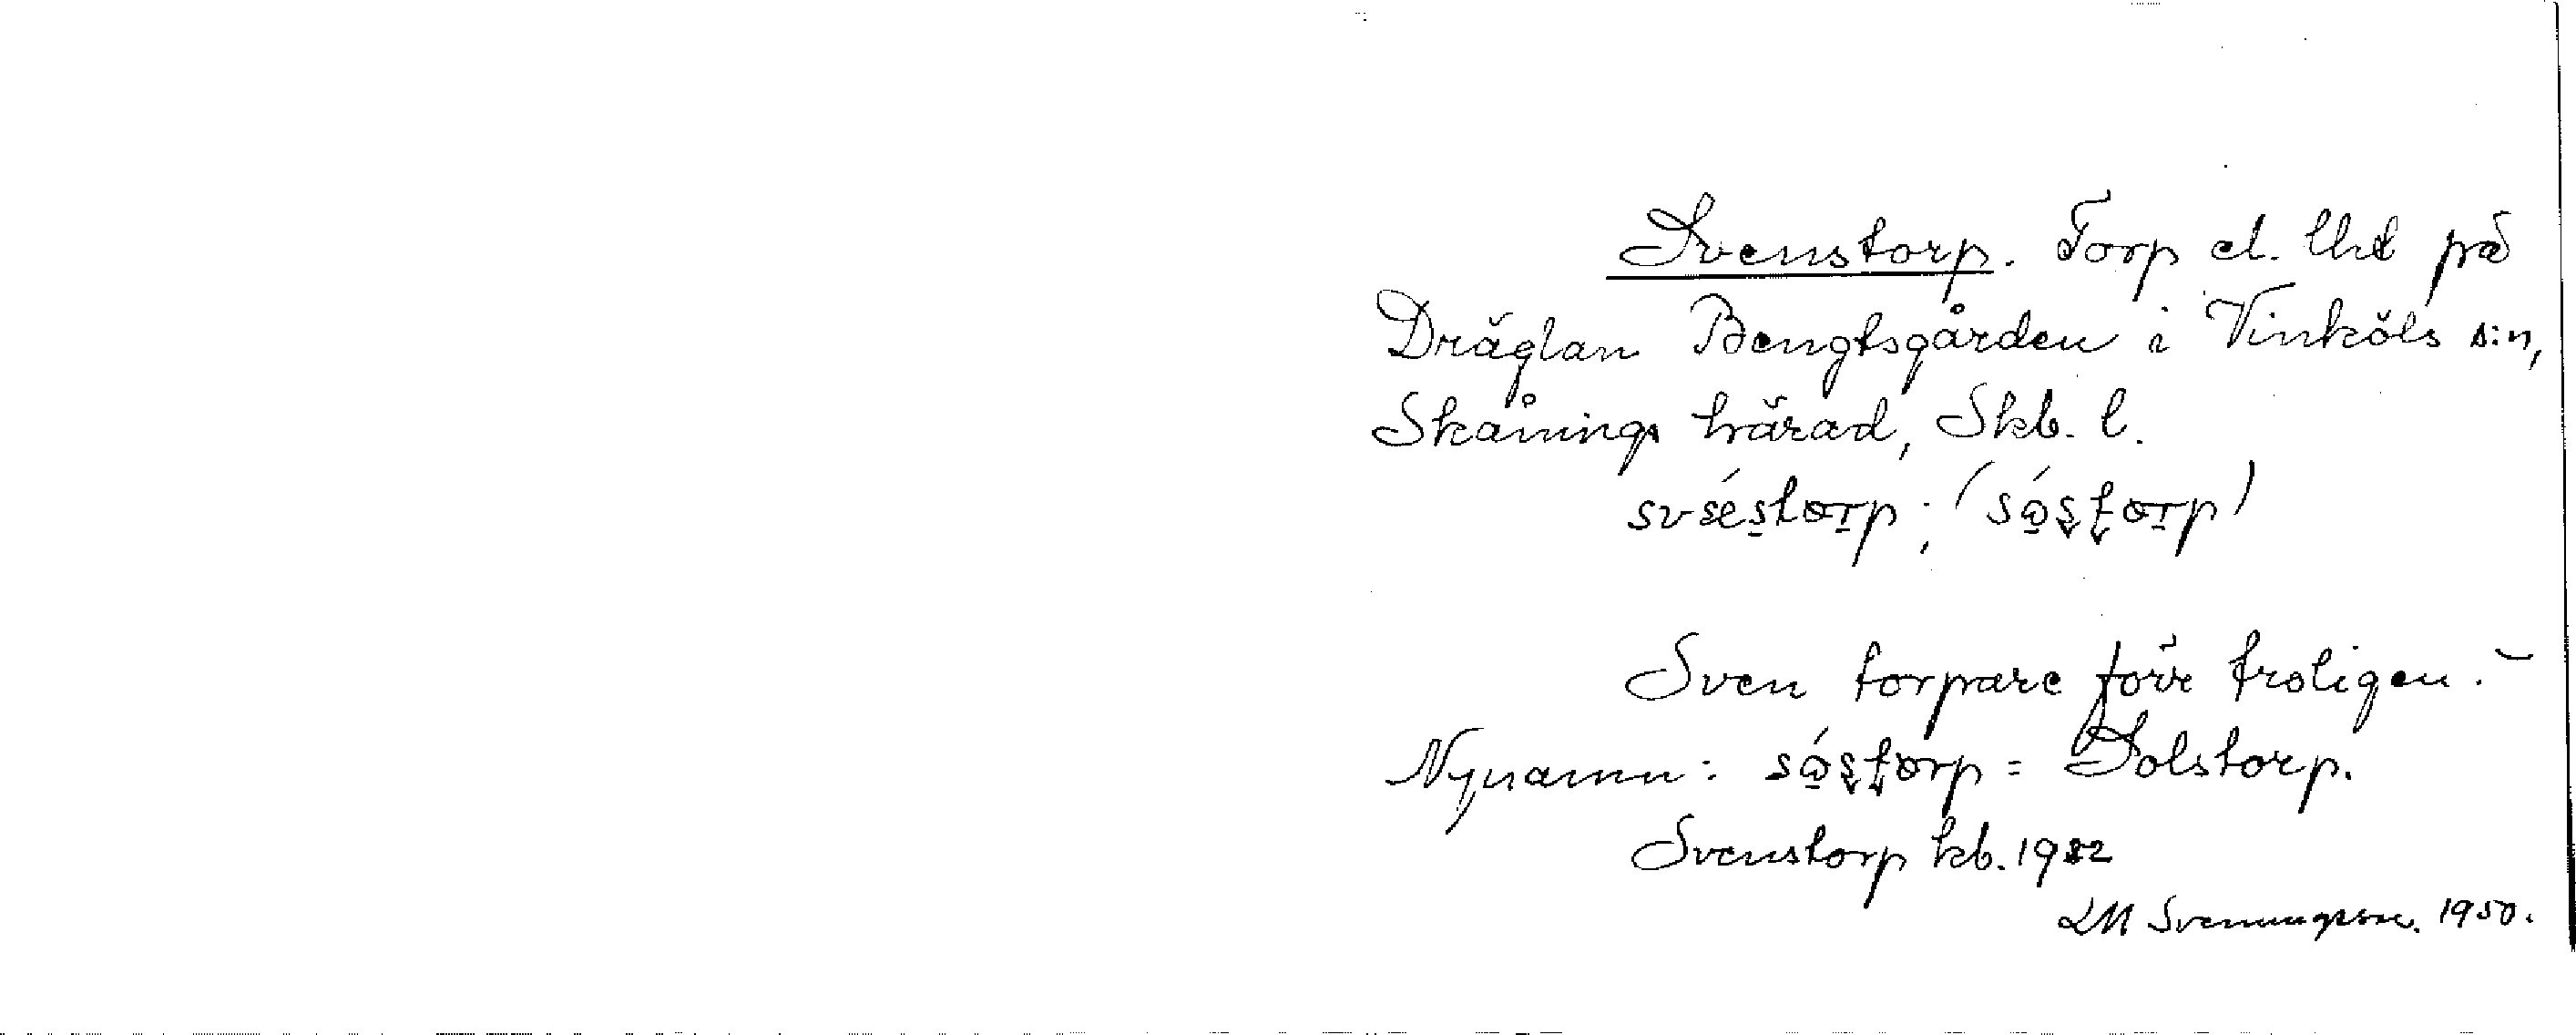 Svenstorp. Torp el. lht på
Dräglan Bengtsgården i Vinköls s:n,
Skånings härad, Skb. l.
svéstorp; (sós̨ţorp)
Sven torpare förr troligen. –
Nynamn: sós̨ţorp = Solstorp.
Svenstorp kb. 1932
LM Svenungsson. 1950.